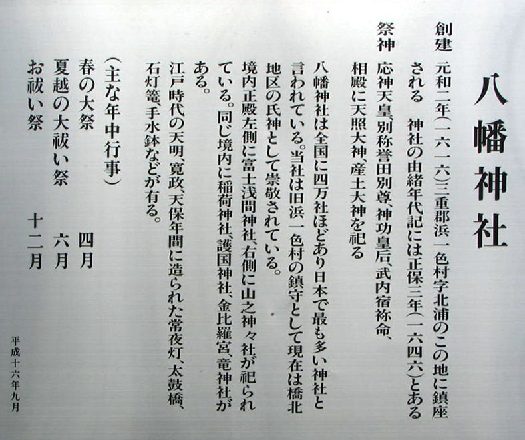 八幡神社
創建 元和二年(一六一六)三重郡浜一色村字北浦のこの地に鎮座
される 神社の由緒年代記には正保三年(一六四六)とある
祭神 応神天皇、別称誉田別尊、神功皇后、武内宿祢命、
相殿に天照大神、産土大神を祀る
八幡神社は全国に四万社ほどあり日本で最も多い神社と
言われている。当社は旧浜一色村の鎮守として現在は橋北
地区の氏神として崇敬されている。
境内正殿左側に富士浅間神社、右側に山之神々社が祀られ
ている。同じ境内に稲荷神社、護国神社、金比羅宮、竜神社が
ある。
江戸時代の天明、寛政、天保年間に造られた常夜灯、太鼓橋、
石灯篭、手水鉢などが有る。
(主な年中行事)
春の大祭 四月
夏越の大祓い祭 六月
お祓い祭 十二月
平成十六年九月